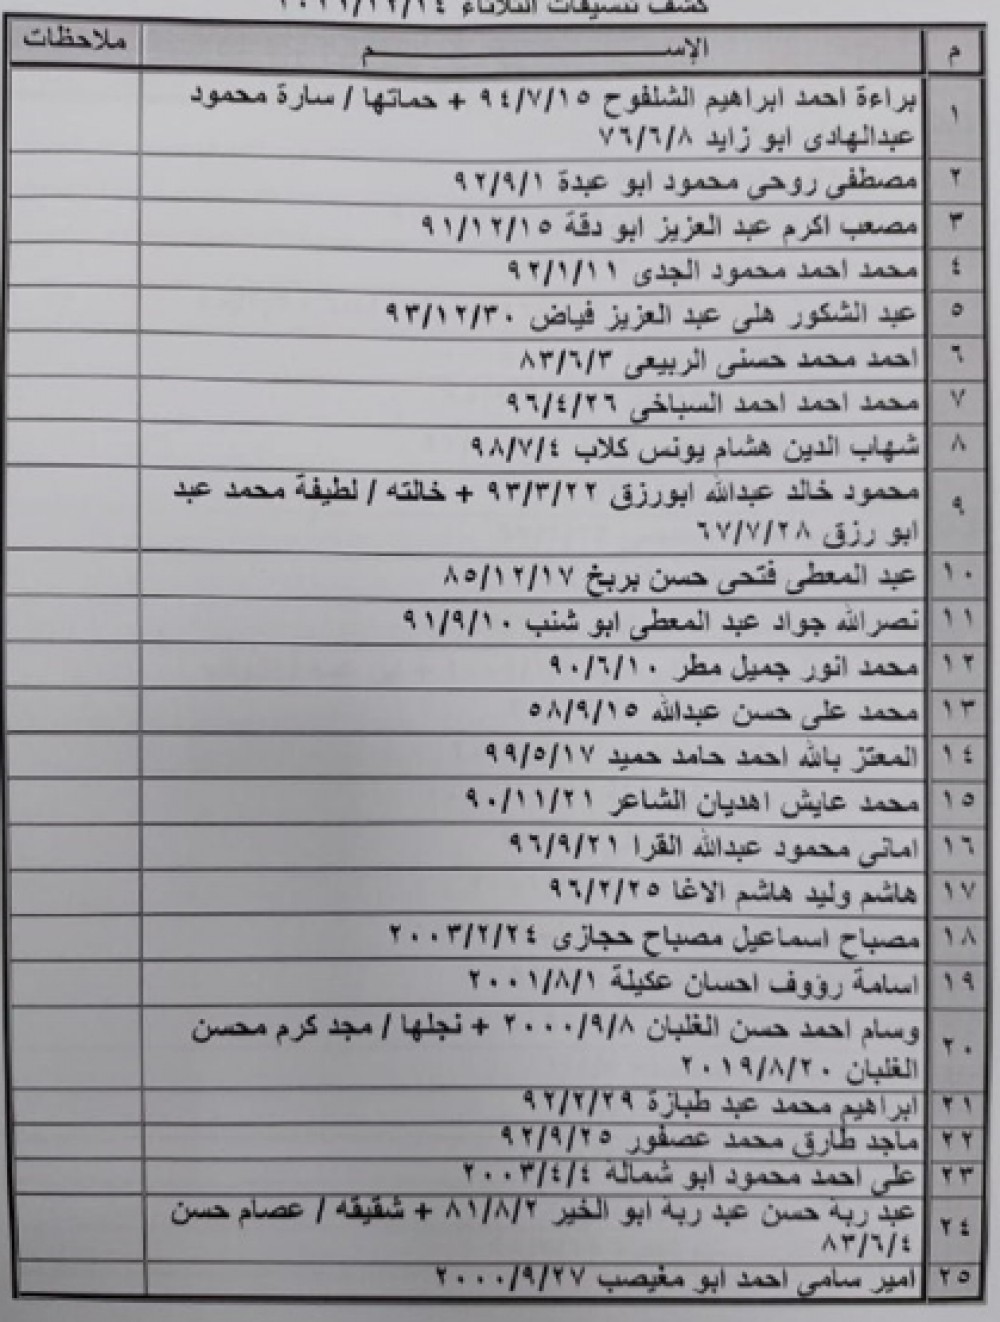 كشف تنسيقات الثلاثاء ٢٠٢١/١٢/١٤
م الإســـــــــم ملاحظات
١ براءة احمد ابراهيم الشلفوح ٩٤/٧/١٥ + حماتها / سارة محمود
عبدالهادى ابو زايد ٧٦/٦/٨
٢ مصطفى روحى محمود ابو عبدة ٩٢/٩/١
٣ مصعب اكرم عبد العزيز ابو دقة ٩١/١٢/١٥
٤ محمد احمد محمود الجدى ٩٢/١/١١
٥ عبد الشكور هلى عبد العزيز فياض ٩٣/١٢/٣٠
٦ احمد محمد حسنى الربيعى ٨٣/٦/٣
٧ محمد احمد احمد السباخى ٩٦/٤/٢٦
٨ شهاب الدين هشام يونس كلاب ٩٨/٧/٤
٩ محمود خالد عبدالله ابورزق ٩٣/٣/٢٢ + خالته / لطيفة محمد عبد
ابو رزق ٦٧/٧/٢٨
١٠ عبد المعطى فتحى حسن بربخ ٨٥/١٢/١٧
١١ نصرالله جواد عبد المعطى ابو شنب ٩١/٩/١٠
١٢ محمد انور جميل مطر ٩٠/٦/١٠
١٣ محمد على حسن عبدالله ٥٨/٩/١٥
١٤ المعتز بالله احمد حامد حميد ٩٩/٥/١٧
١٥ محمد عايش اهديان الشاعر ٩٠/١١/٢١
١٦ امانى محمود عبدالله القرا ٩٦/٩/٢١
١٧ هاشم وليد هاشم الاغا ٩٦/٢/٢٥
١٨ مصباح اسماعيل مصباح حجازى ٢٠٠٣/٢/٢٤
١٩ اسامة رؤوف احسان عكيلة ٢٠٠١/٨/١
٢٠ وسام احمد حسن الغلبان ٢٠٠٠/٩/٨ + نجلها / مجد كرم محسن
الغلبان ٢٠١٩/٨/٢٠
٢١ ابراهيم محمد عبد طبازة ٩٢/٢/٢٩
٢٢ ماجد طارق محمد عصفور ٩٢/٩/٢٥
٢٣ على احمد محمود ابو شمالة ٢٠٠٣/٤/٤
٢٤ عبد ربة حسن عبد ربة ابو الخير ٨١/٨/٢ + شقيقه / عصام حسن
٨٣/٦/٤
٢٥ امير سامى احمد ابو مغيصب ٢٠٠٠/٩/٢٧